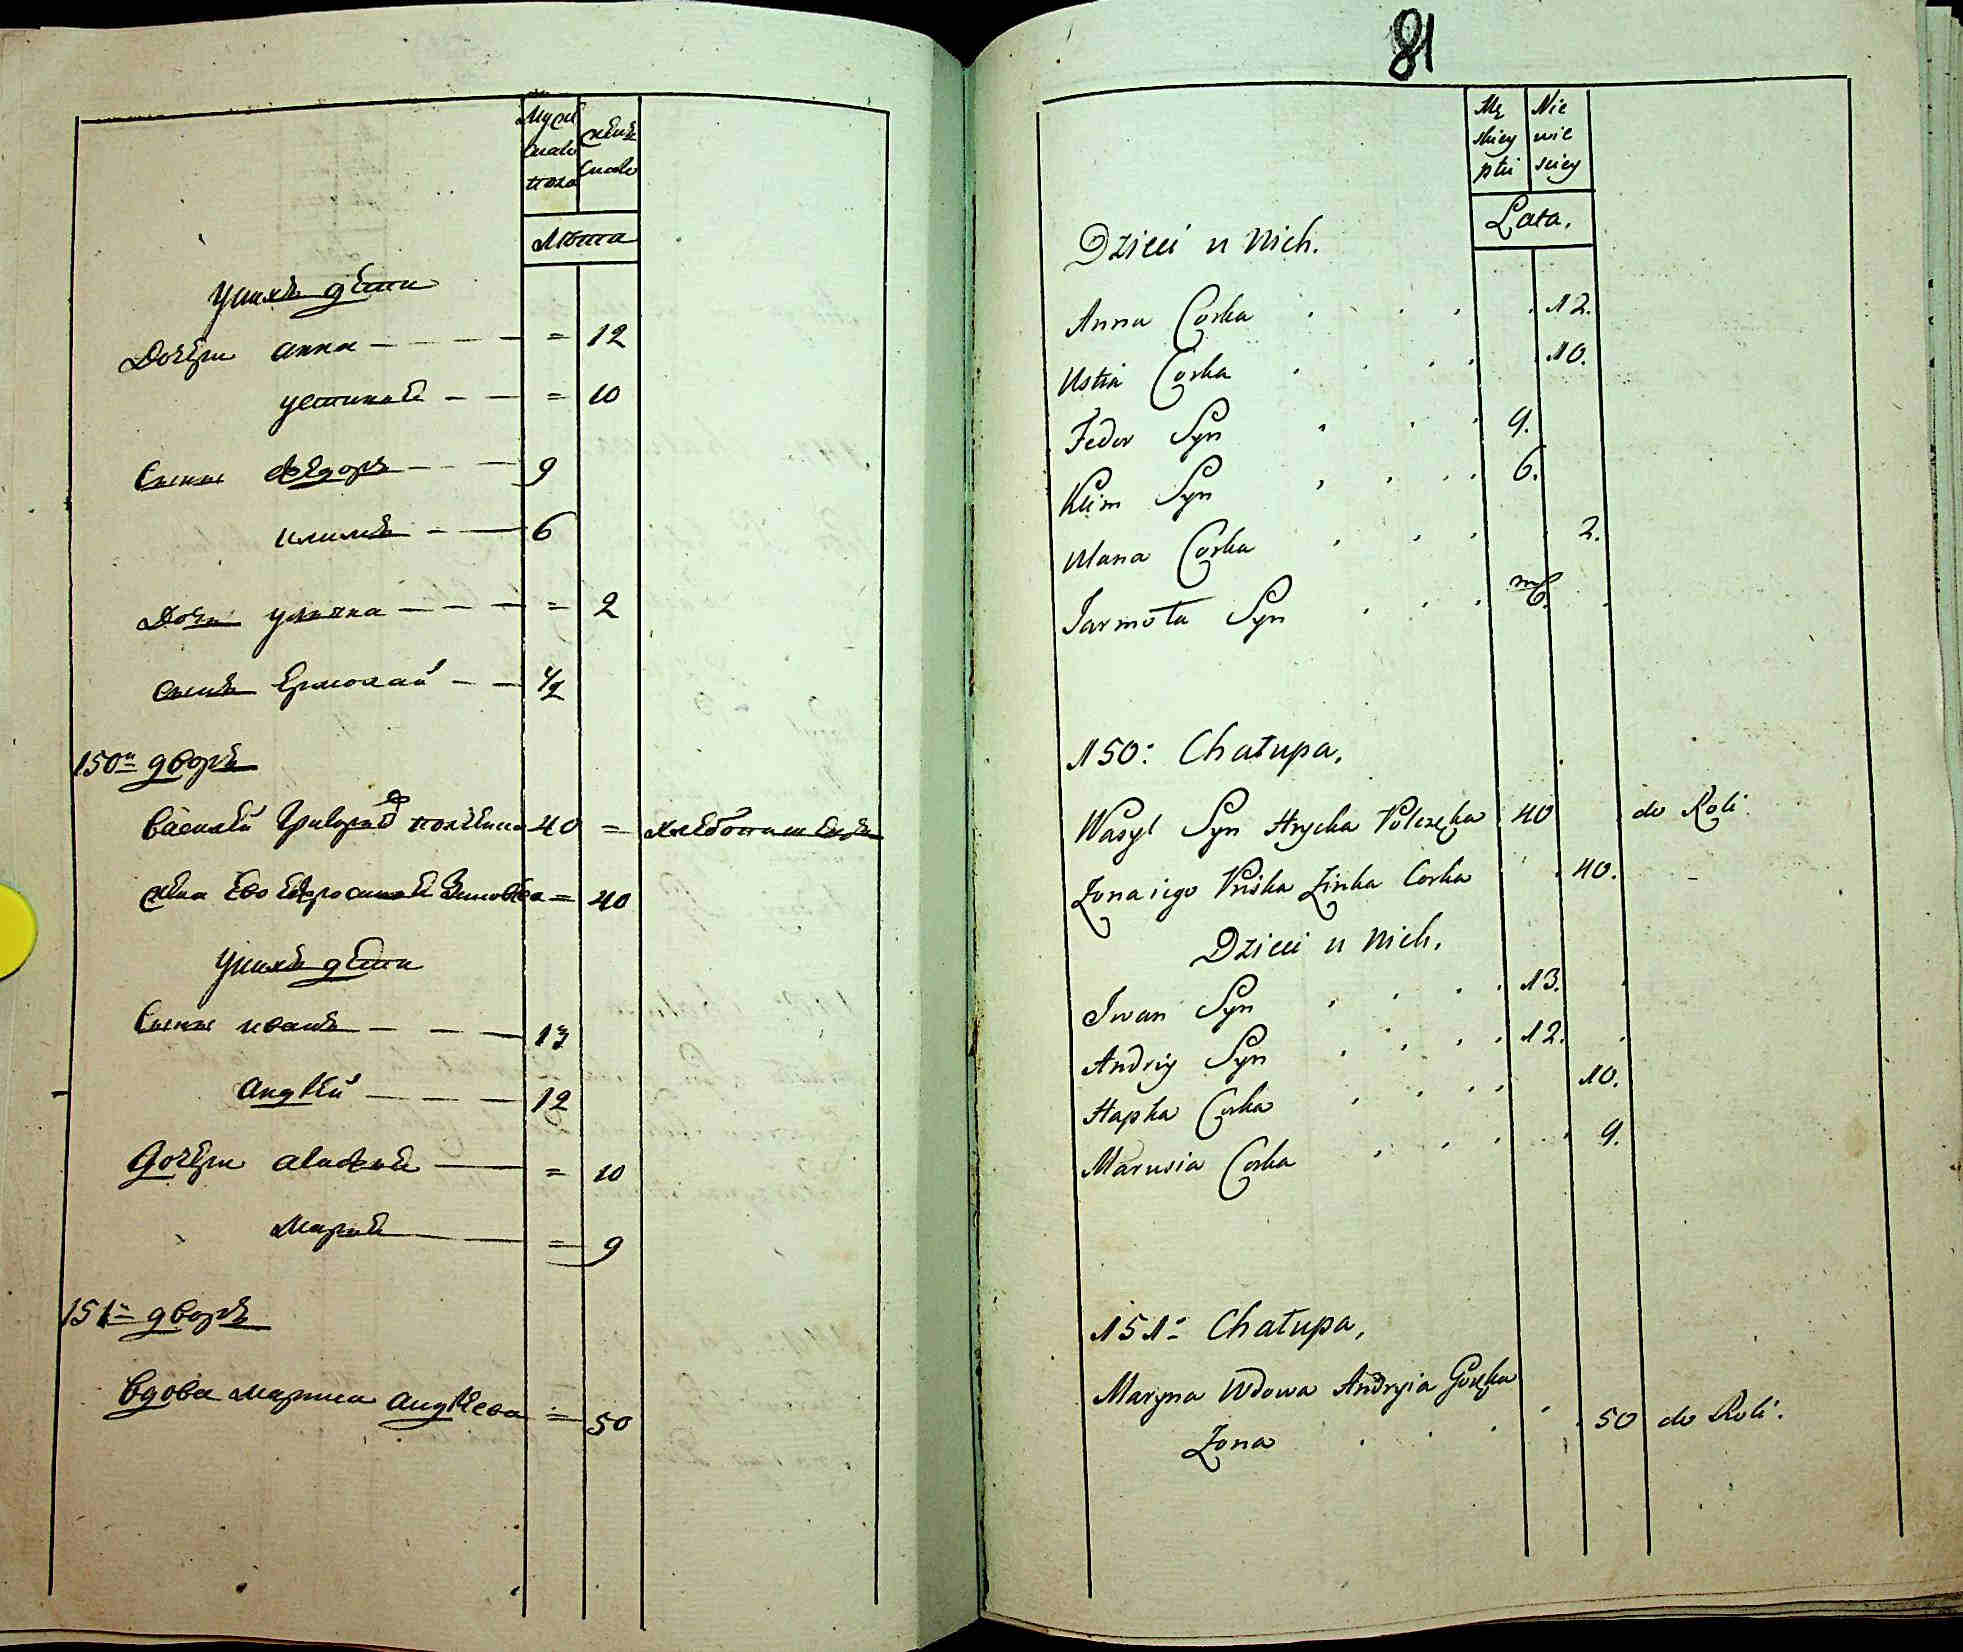 Мужеска пола
женска
Лѣта
У нихъ дѣти
Дочери анна — — — = 12
устинья — — = 10
Сыны Ѳедоръ — — 9
климъ — — 6
Дочь ульяна — — — = 2
сынъ Ермолай — — 1/2
150й дворъ
Василей Григорьевъ 40 = хлебопашецъ
жена Ево Ефросинья Зиновьева = 40
У нихъ дѣти
Сыны иванъ — — — 13
Андрей — — — 12
Дочери агафья — = 10
Марья — = 9
151й дворъ
Вдова марина Андреева = 50
81
Mę skiey płci
Nie wie sciey
Lata.
Dzieci u Nich.
Anna Corka . . . . 12.
Ustia Corka . . . . 10.
Fedor Syn . . . 9.
Klim Syn . . . . 6.
Ulana Corka . . . . 2.
Jarmoła Syn . . . m 6.
150: Chałupa.
Wasyl Syn Hrycka 40 do Roli
Zona iego Priska Zinka Corka . . 40.
Dzieci u Nich.
Iwan Syn . . . . 13.
Andriy Syn . . . . 12.
Hapka Corka . . . . 10.
Marusia Corka . . . . 9.
151: Chałupa,
Maryna Wdowa Andryia
Zona . . . . . 50 do Roli.